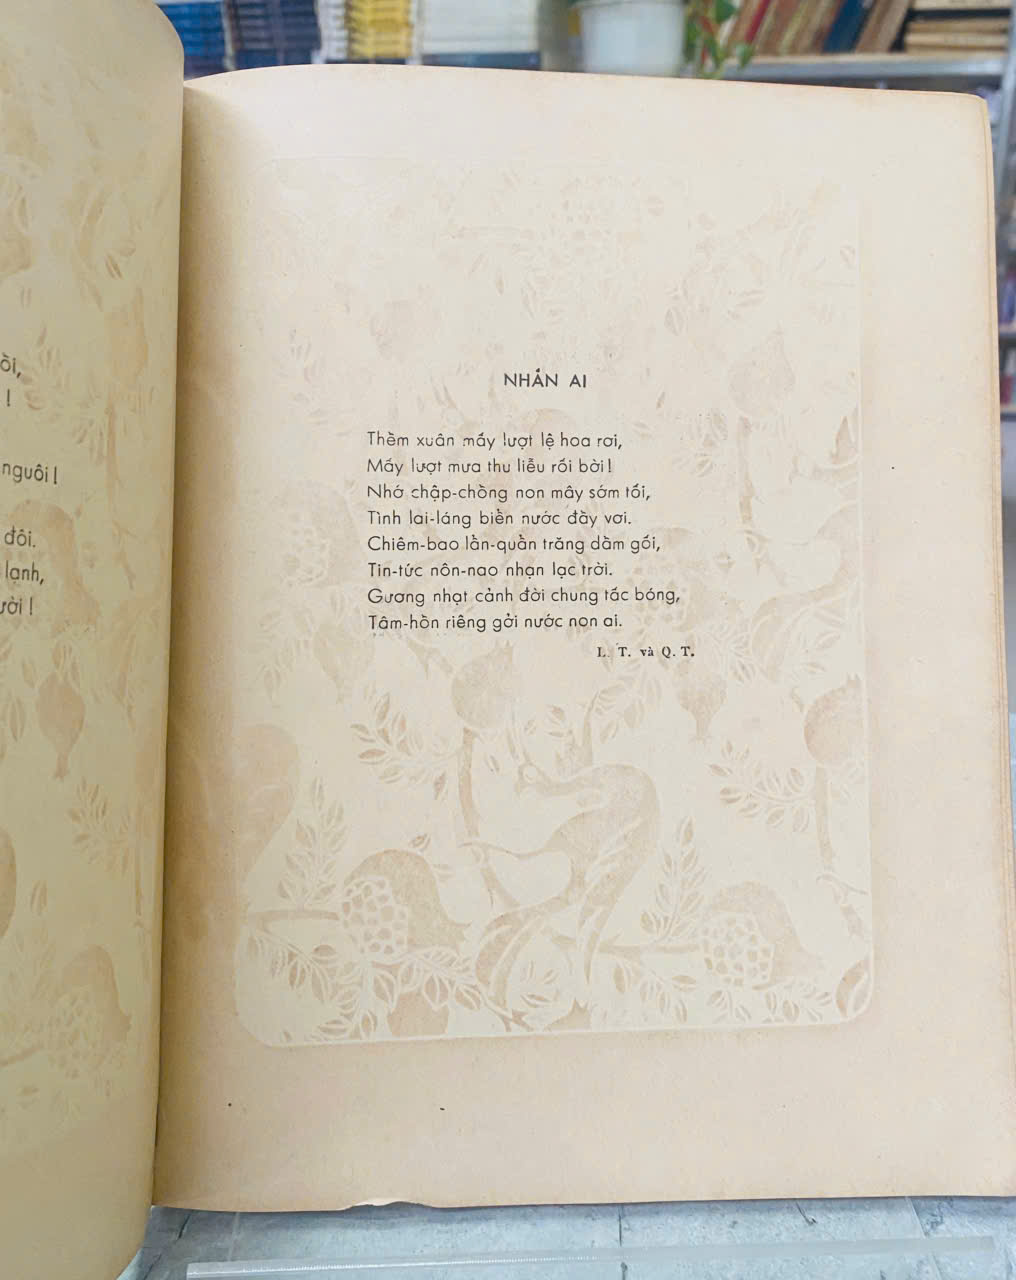 ồi,
!
nguôi !
đôi.
lạnh,
ười !
NHẮN AI
Thềm xuân mấy lượt lệ hoa rơi,
Mấy lượt mưa thu liễu rối bời !
Nhớ chập-chồng non mây sớm tối,
Tình lai-láng biển nước đầy vơi.
Chiêm-bao lần-quần trăng dầm gối,
Tin-tức nôn-nao nhạn lạc trời.
Gương nhạt cảnh đời chung tấc bóng,
Tâm-hồn riêng gởi nước non ai.
L. T. và Q. T.